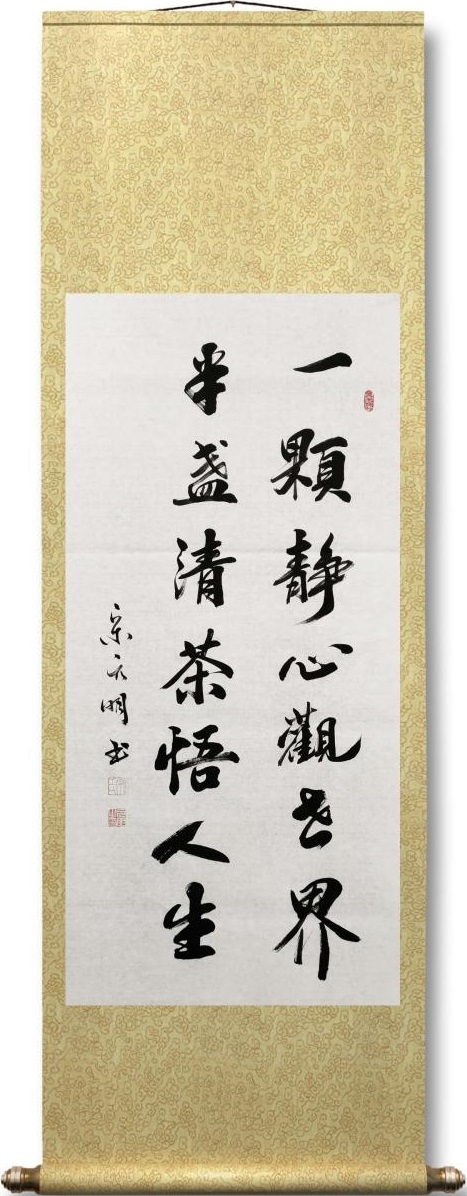 一顆静心觀世界
半盞清茶悟人生
宗天明书